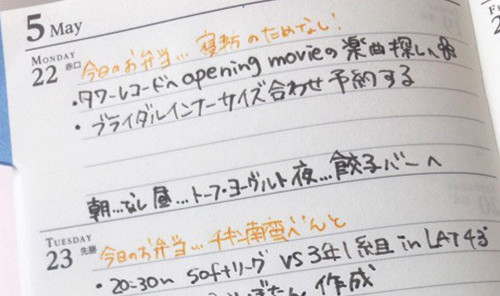 5 May
MONDAY
22 赤口
今日のお弁当…寝坊のためなし!
・タワーレコードへopening movieの楽曲探しへ
・ブライダルインナーサイズ合わせ予約する
朝…なし 昼…トーフ・ヨーグルト 夜…餃子バーへ
TUESDAY
23 先勝
今日のお弁当…チキン南蛮べんと
・20:30〜 softリーグ VS 3年1組 in LAT43°
作成